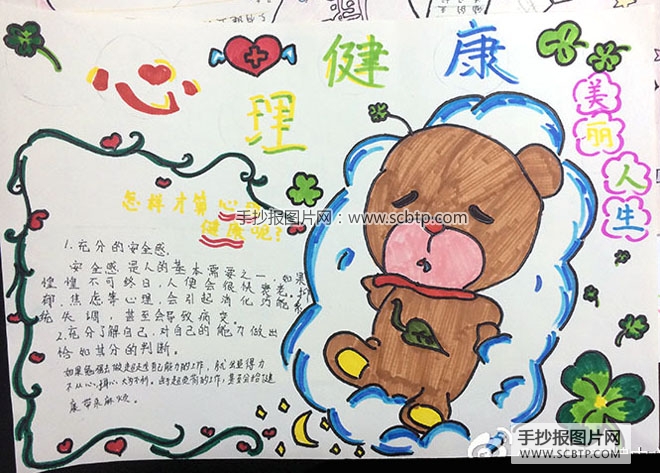 心理健康
美丽人生
怎样才算心
健康呢?
手抄报图片网：www.scbtp.com
1.充分的安全感.
安全感是人的基本需要之一,如果
惶惶不可终日,人便会很快衰老。抑
郁.焦虑等心理,会引起消化功能系
统失调,甚至会导致病变。
2.充分了解自己,对自己的能力做出
恰如其分的判断。
如果勉强去做超越自己能力的工作,就会显得力
不从心,
的工作,甚至会给健
康带来麻烦。
手抄报图片网
WWW.SCBTP.COM